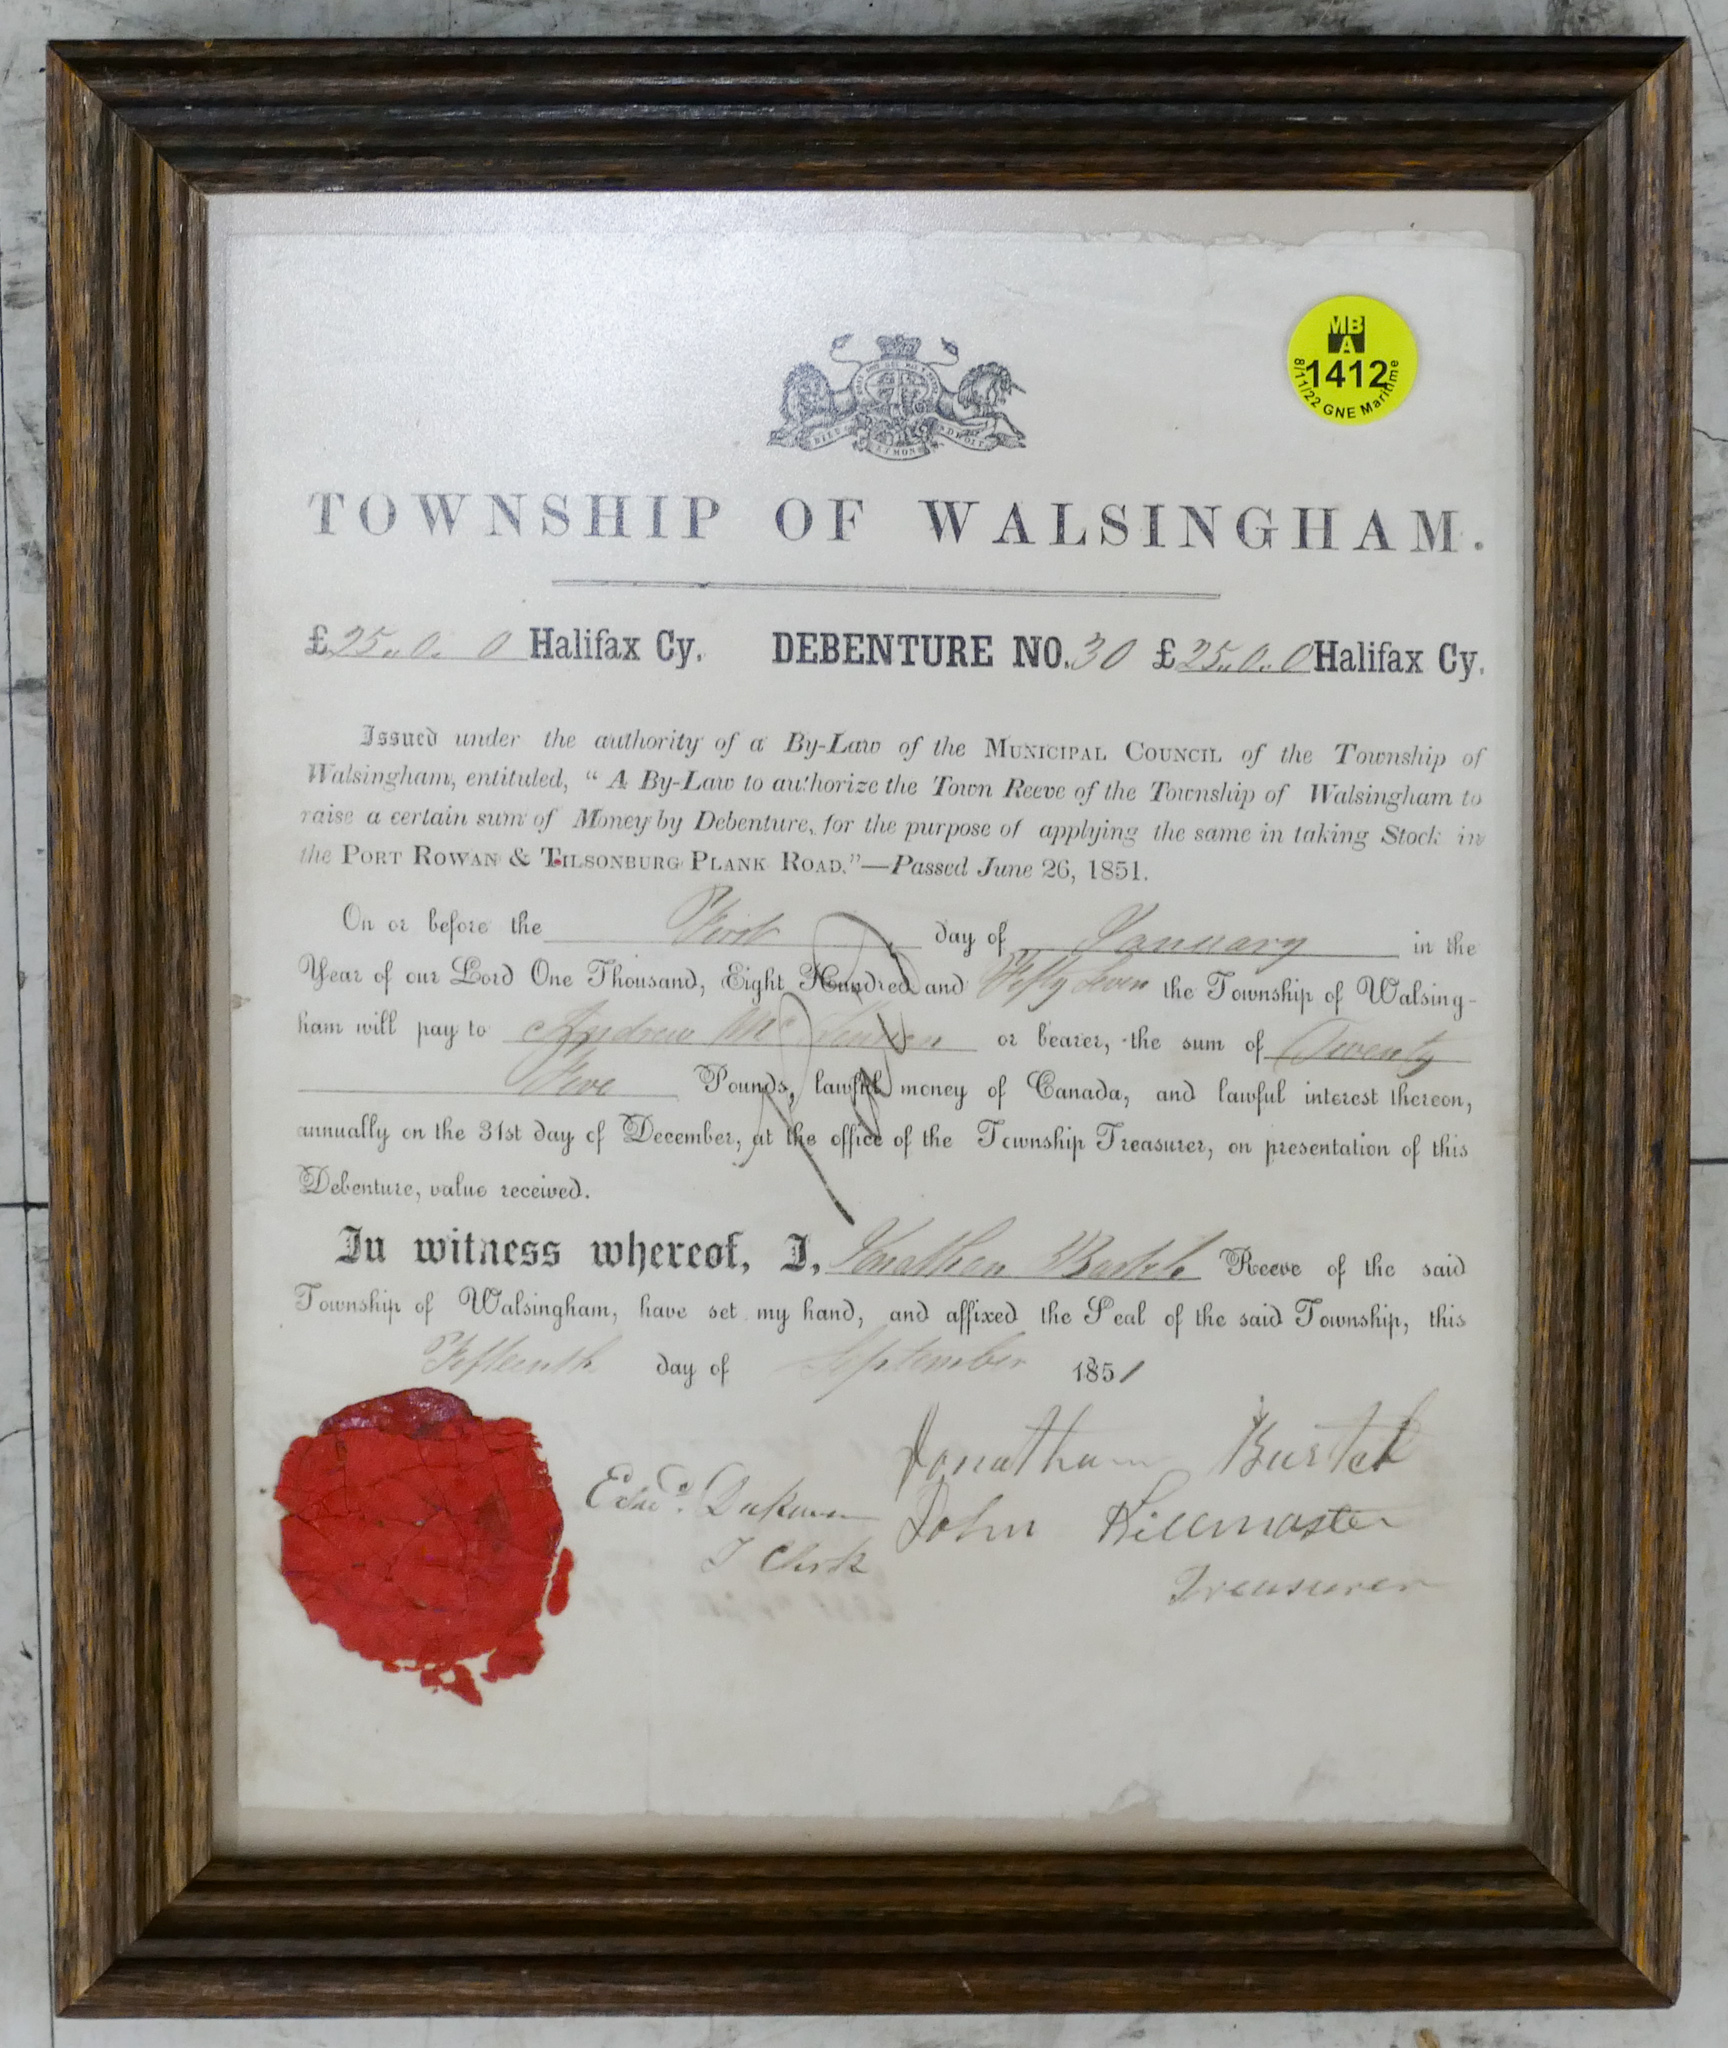 MB
A
1412
8/11/22 GNE Maritime
DIEU ET MON DROIT
TOWNSHIP OF WALSINGHAM.
£25.. 0. 0 Halifax Cy. DEBENTURE NO. 30 £25.. 0.. 0 Halifax Cy.
Issued under the authority of a By-Law of the MUNICIPAL COUNCIL of the Township of
Walsingham, entituled, "A By-Law to authorize the Town Reeve of the Township of Walsingham to
raise a certain sum of Money by Debenture, for the purpose of applying the same in taking Stock in
the PORT ROWAN & TILSONBURG PLANK ROAD."—Passed June 26, 1851.
On or before the First day of January in the
Year of our Lord One Thousand, Eight Hundred and Fifty Seven the Township of Walsing-
ham will pay to Andrew Mc or bearer, the sum of Twenty
Five Pounds, lawful money of Canada, and lawful interest thereon,
annually on the 31st day of December, at the office of the Township Treasurer, on presentation of this
Debenture, value received.
In witness whereof, I, Jonathan Reeve of the said
Township of Walsingham, have set my hand, and affixed the Seal of the said Township, this
Fifteenth day of September 1851
Jonathan
Edwd.
John Killmaster
T Clerk
Treasurer